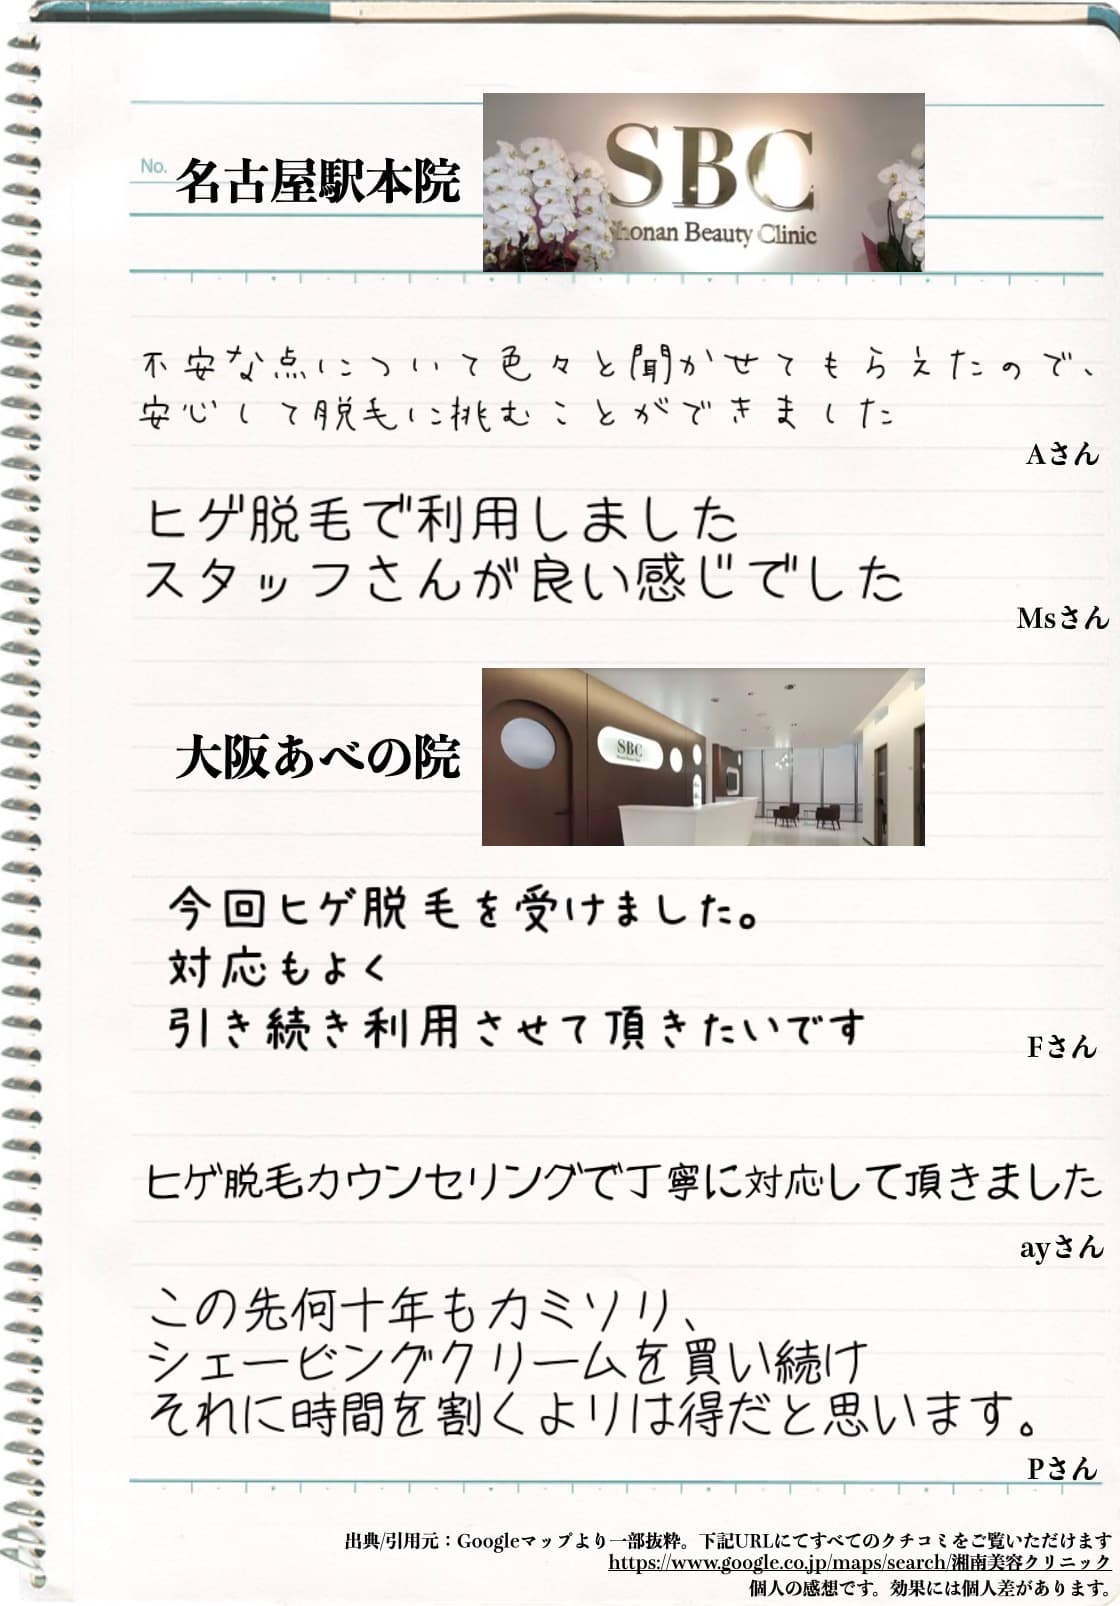 No. 名古屋駅本院
SBC
Shonan Beauty Clinic
不安な点について色々と聞かせてもらえたので、
安心して脱毛に挑むことができました
Aさん
ヒゲ脱毛で利用しました
スタッフさんが良い感じでした
Msさん
大阪あべの院
SBC
今回ヒゲ脱毛を受けました。
対応もよく
引き続き利用させて頂きたいです
Fさん
ヒゲ脱毛カウンセリングで丁寧に対応して頂きました
ayさん
この先何十年もカミソリ、
シェービングクリームを買い続け
それに時間を割くよりは得だと思います。
Pさん
出典/引用元：Googleマップより一部抜粋。下記URLにてすべてのクチコミをご覧いただけます
https://www.google.co.jp/maps/search/湘南美容クリニック
個人の感想です。効果には個人差があります。